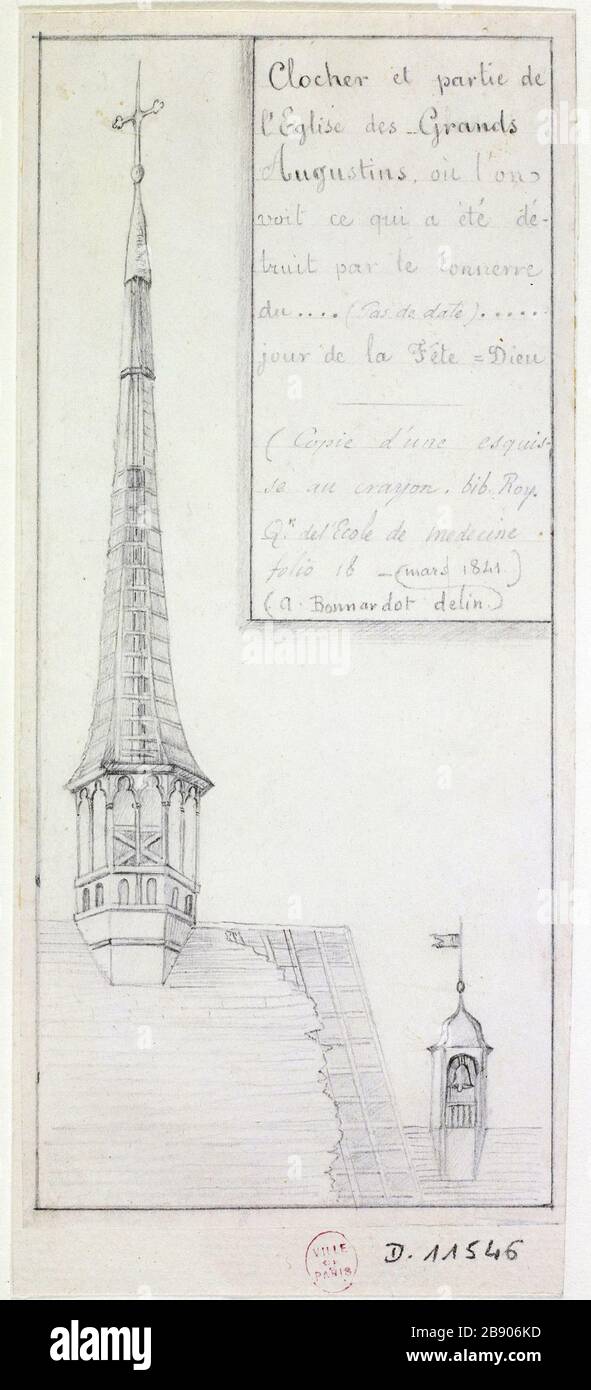 Clocher et partie de
l'Eglise des Grands
Augustins, où l'on
voit ce qui a été dé-
truit par le tonnerre
du .... (Pas de date) .....
jour de la Fête = Dieu
(Copie d'une esquis-
se au crayon. bib. Roy.
Qr. de l'Ecole de medecine
folio 18 - (mars 1841)
(A. Bonnardot delin.)
VILLE
DE
PARIS
D. 11546
alamy
Image ID: 2B906KD
www.alamy.com